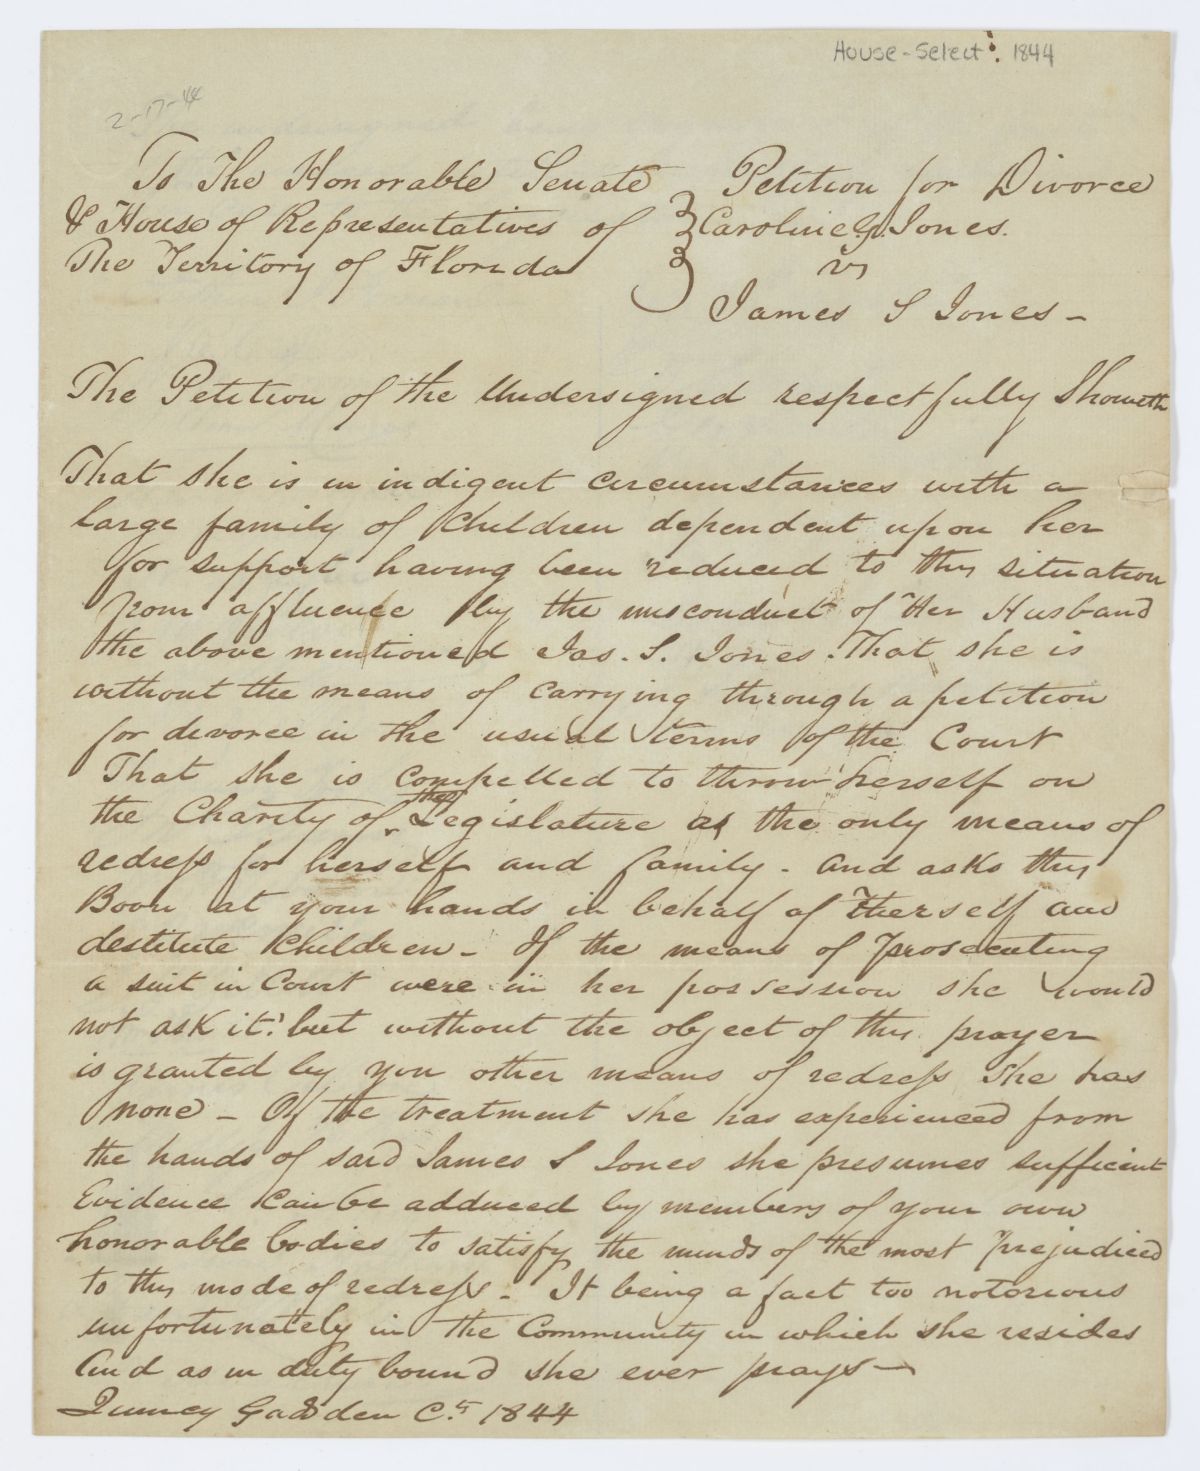 House-Select. 1844
2-17-44
To The Honorable Senate
& House of Representatives of
The Territory of Florida
Petition for Divorce
Caroline G. Jones.
vs
James S Jones -
The Petition of the Undersigned respectfully Showeth
That she is in indigent circumstances with a
large family of Children dependent upon her
for support having been reduced to this situation
from affluence by the misconduct of Her Husband
the above mentioned Jas. S. Jones. That she is
without the means of carrying through a petition
for divorce in the usual terms of the Court
That she is compelled to throw herself on
the Charity of the Legislature as the only means of
redress for herself and family. and asks this
Boon at your hands in behalf of Herself and
destitute Children - If the means of prosecuting
a suit in Court were in her possession she would
not ask it. but without the object of this prayer
is granted by you other means of redress She has
none - Of the treatment she has experienced from
the hands of said James S Jones she presumes sufficient
Evidence can be adduced by members of your own
honorable bodies to satisfy the minds of the most prejudiced
to this mode of redress - It being a fact too notorious
unfortunately in the Community in which she resides
And as in duty bound she ever prays -
Quincy Gadsden Ct. 1844